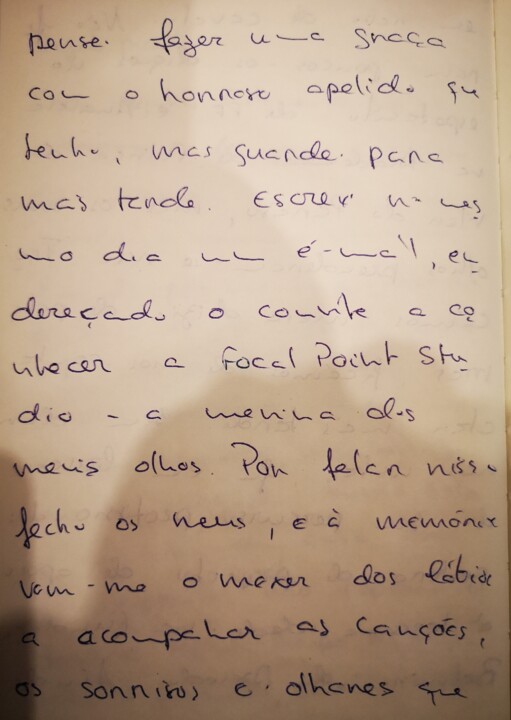 pensei fazer uma graça
com o honroso apelido que
tenho, mas guardei para
mais tarde. Escrevi no mes
mo dia um é-mail, en
dereçado o convite a co
nhecer a Focal Point Stu
dio - a menina dos
meus olhos. Por falar nisso
fecho os meus, e à memória
vem-me o mexer dos lábios
a acompahar as canções,
os sorrisos e olhares que